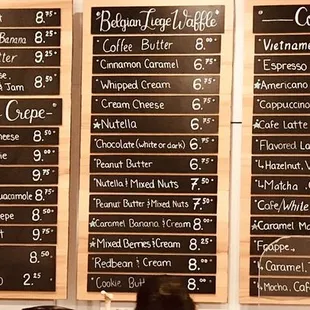 8.75
Banana 8.25
tter 9.25
se
d Jam 8.50
- Crepe -
heese 8.50
9.00
9.75
uacamole 8.75
epe 8.50
t 9.75
0
o 2.25
Belgian Liege Waffle
Coffee Butter 8.00
Cinnamon Caramel 6.75
Whipped Cream 6.75
Cream Cheese 6.75
★Nutella 6.75
Chocolate (white or dark) 6.75
Peanut Butter 6.75
Nutella & Mixed Nuts 7.50
Peanut Butter & Mixed Nuts 7.50
★Caramel Banana & Cream 8.00
★Mixed Berries & Cream 8.25
Redbean & Cream 8.00
Cookie Butt 8.00
Co
Vietnam
Espresso
★Americano
Cappuccino
★Cafe Latte
Flavored L
Hazelnut, V
Matcha, C
Cafe/White
★Caramel M
Frappe
Caramel,
Mocha, Caf